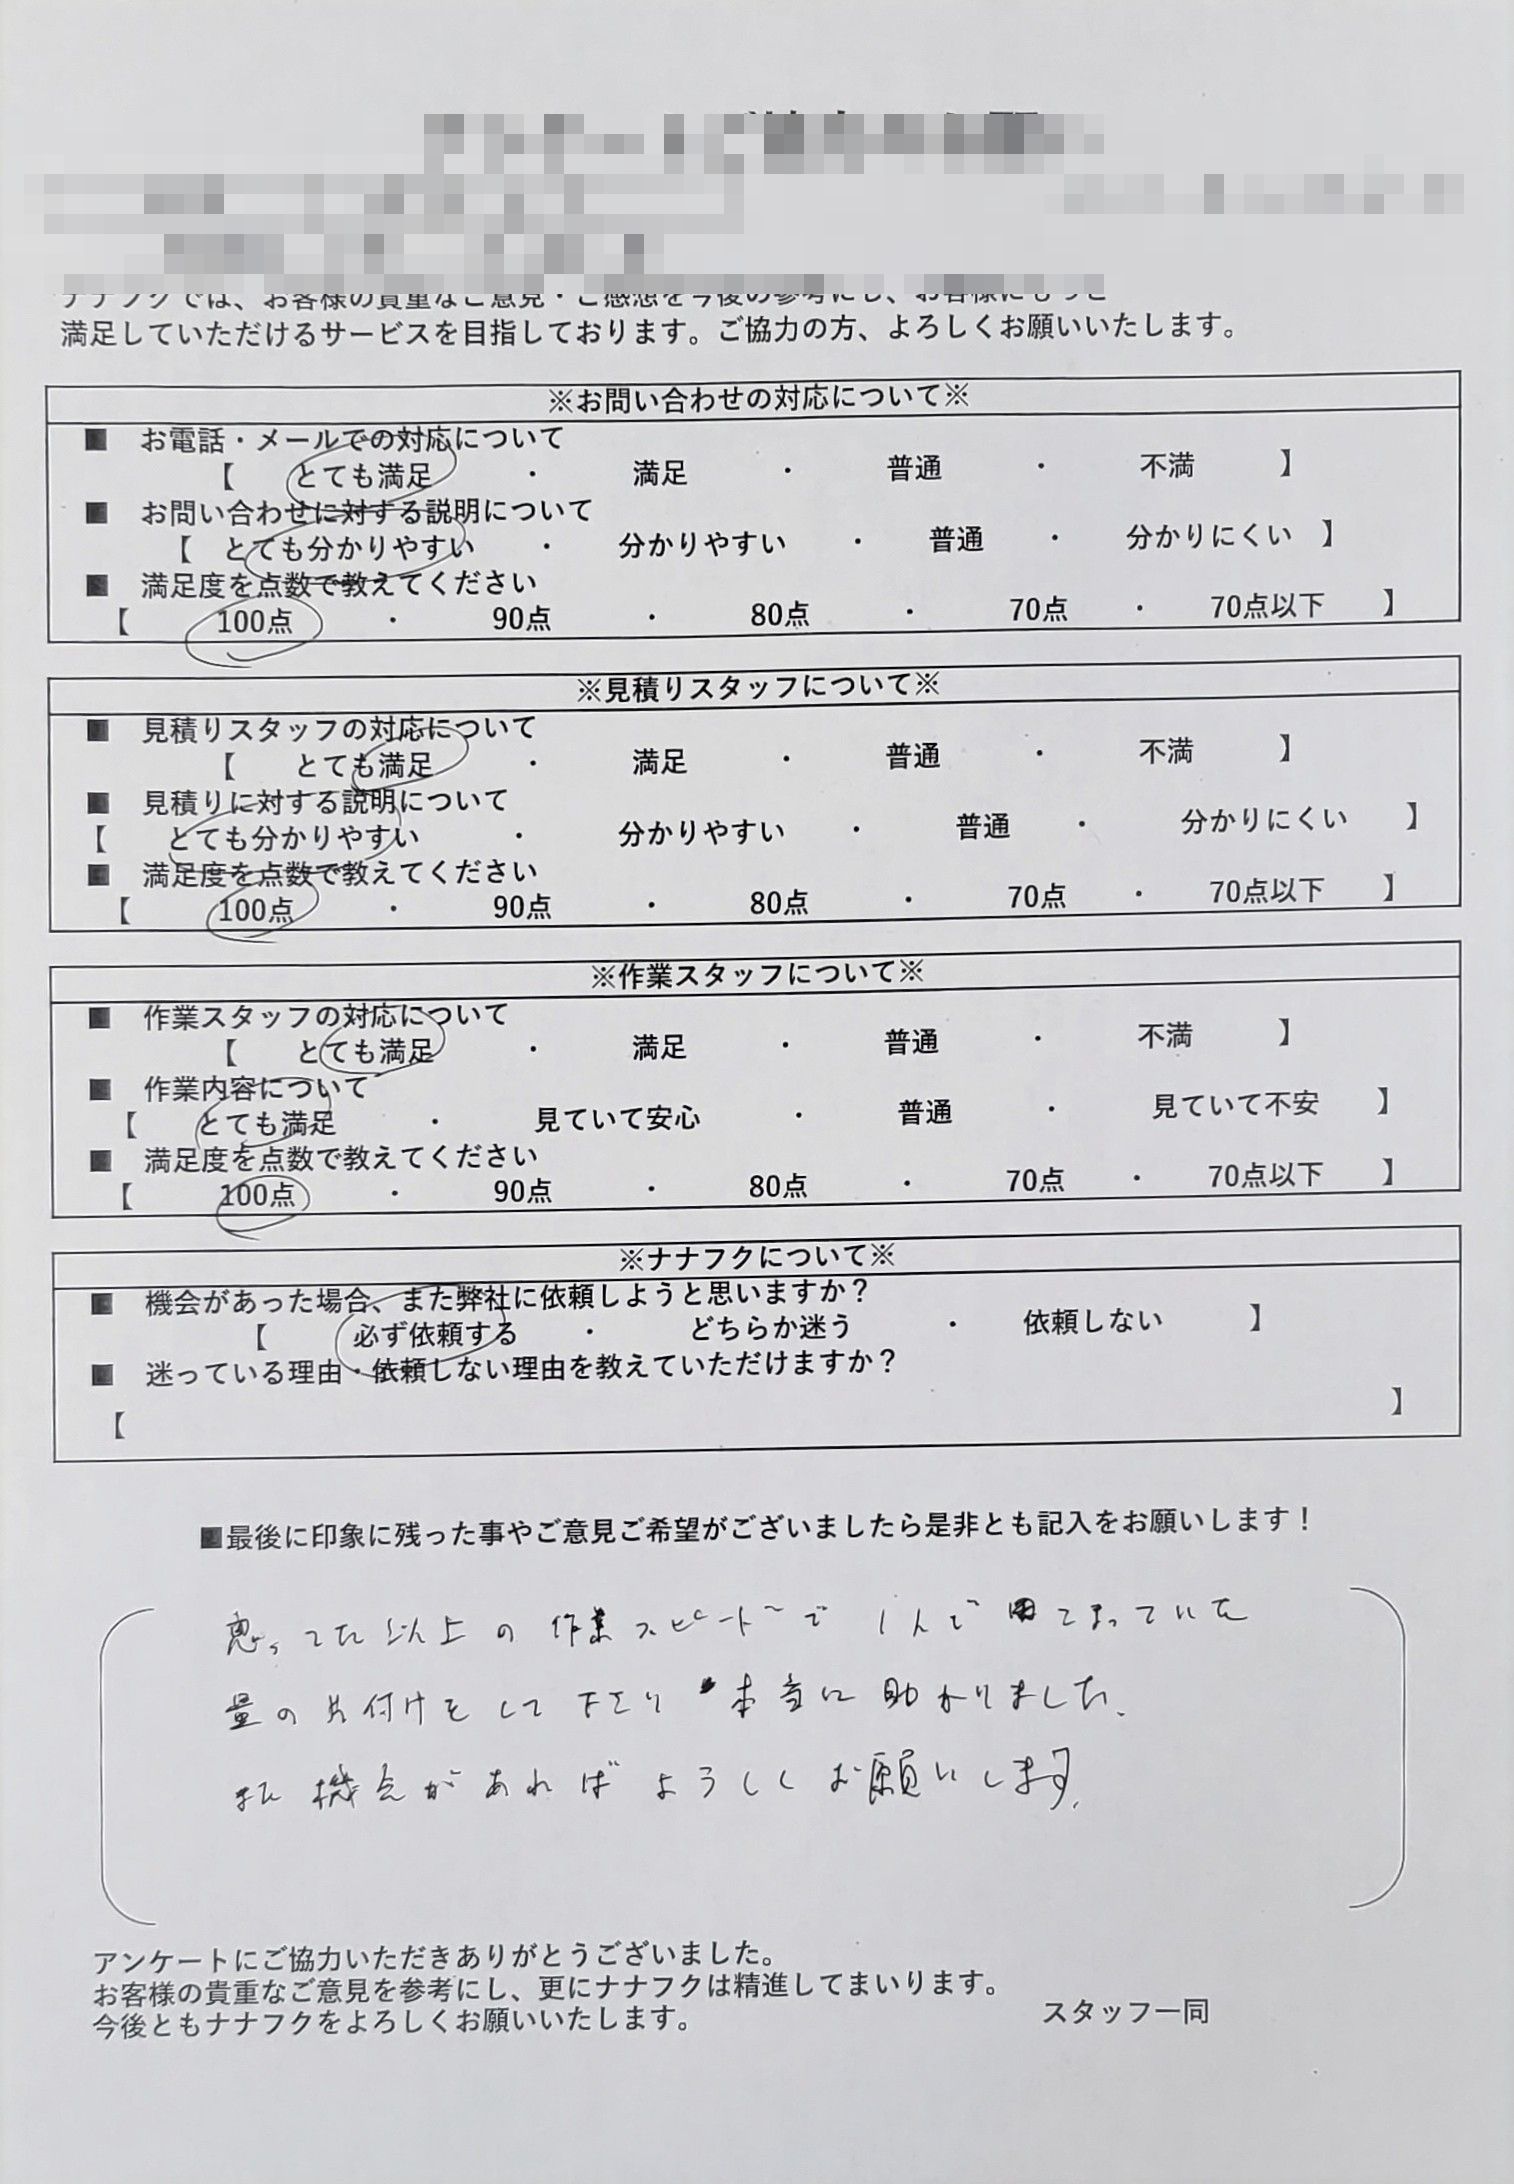 ナナフクでは、お客様の貴重なご意見・ご感想を今後の参考にし、お客様にもっと
満足していただけるサービスを目指しております。ご協力の方、よろしくお願いいたします。
※お問い合わせの対応について※
■ お電話・メールでの対応について
【 とても満足 ・ 満足 ・ 普通 ・ 不満 】
■ お問い合わせに対する説明について
【 とても分かりやすい ・ 分かりやすい ・ 普通 ・ 分かりにくい 】
■ 満足度を点数で教えてください
【 100点 ・ 90点 ・ 80点 ・ 70点 ・ 70点以下 】
※見積りスタッフについて※
■ 見積りスタッフの対応について
【 とても満足 ・ 満足 ・ 普通 ・ 不満 】
■ 見積りに対する説明について
【 とても分かりやすい ・ 分かりやすい ・ 普通 ・ 分かりにくい 】
■ 満足度を点数で教えてください
【 100点 ・ 90点 ・ 80点 ・ 70点 ・ 70点以下 】
※作業スタッフについて※
■ 作業スタッフの対応について
【 とても満足 ・ 満足 ・ 普通 ・ 不満 】
■ 作業内容について
【 とても満足 ・ 見ていて安心 ・ 普通 ・ 見ていて不安 】
■ 満足度を点数で教えてください
【 100点 ・ 90点 ・ 80点 ・ 70点 ・ 70点以下 】
※ナナフクについて※
■ 機会があった場合、また弊社に依頼しようと思いますか？
【 必ず依頼する ・ どちらか迷う ・ 依頼しない 】
■ 迷っている理由・依頼しない理由を教えていただけますか？
【 】
■最後に印象に残った事やご意見ご希望がございましたら是非とも記入をお願いします！
思ってた以上の作業スピードで 1人で困ってまっていた
量の片付けをして下さり 本当に助かりました。
また機会があればよろしくお願いします。
アンケートにご協力いただきありがとうございました。
お客様の貴重なご意見を参考にし、更にナナフクは精進してまいります。
今後ともナナフクをよろしくお願いいたします。
スタッフ一同